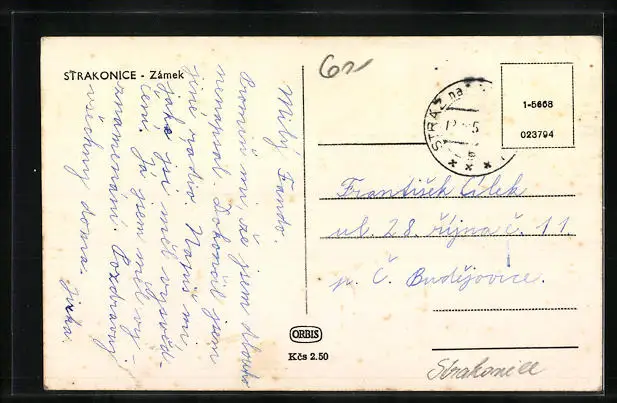 STRAKONICE - Zámek
Milý Frando.
Promiň mi, že jsem dlouho
nenapsal. Dokončil jsem
jiné radio. Napiš mi,
jaké jsi měl vysvěd-
čení. Já jsem měl vy-
znamenání. Pozdravuj
všechny doma. Jirka.
ORBIS
Kčs 2.50
60
STRÁŽ na
1-5668
023794
František Cílek
ul. 28. října č. 11
p. Č. Budějovice.
Strakonice